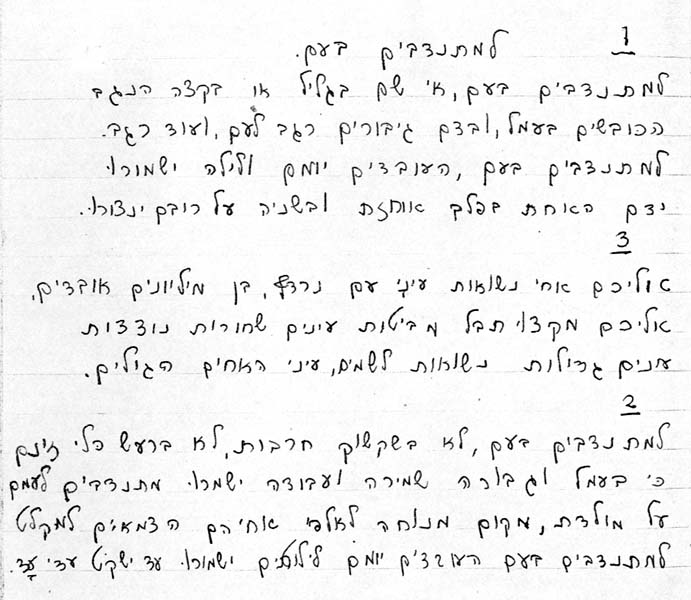 1
למתנדבים בעם.
למתנדבים בעם, אי שם בגליל או בקצה הנגב
הכובשים בעמל, ובדם גיבורים רגב לעם, ועוד רגב.
למתנדבים בעם, העובדים יומם ולילה ישמורו.
ידם האחת בפלב אוחזת ובשניה על רובם ינצורו.
3
אליכם אחי נשואות עיני עם נרדף, בן מיליונים אובדים,
אליכם מקצוי תבל מביטות עינים שחורות נוצצות
עינים גדולות נשואות לשמים, עיני האחים הגולים.
2
למתנדבים בעם, לא בשקשוק חרבות, לא ברעש כלי זינם
כי בעמל וגבורה שמירה ועבודה ישמרו. מתנדבים לעמם
על מולדת, מקום מנוחה לאלפי אחיהם הצמאים למקלט
למתנדבים בעם העובדים יומם לילותים ישמורו. עד ישקט עדי עד.